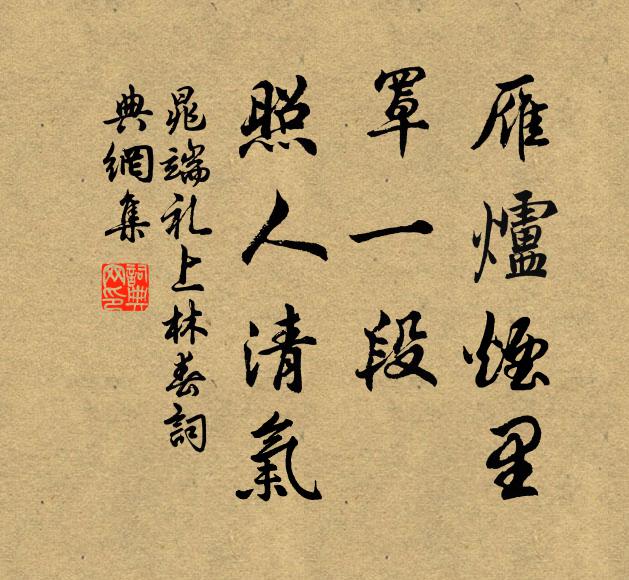 雁爐煙里
罩一段
照人清氣
晁端礼上林春詞
典網集
詞典網印